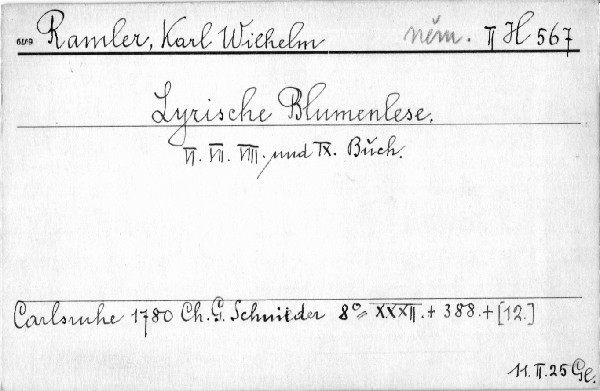 Ramler, Karl Wilhelm něm. II H 567
Lyrische Blumenlese.
VI. VII. VIII. und IX. Buch.
Carlsruhe 1780 Ch. G. Schmieder 8° XXXII. + 388. + [12.]
11. II. 25 Gl.